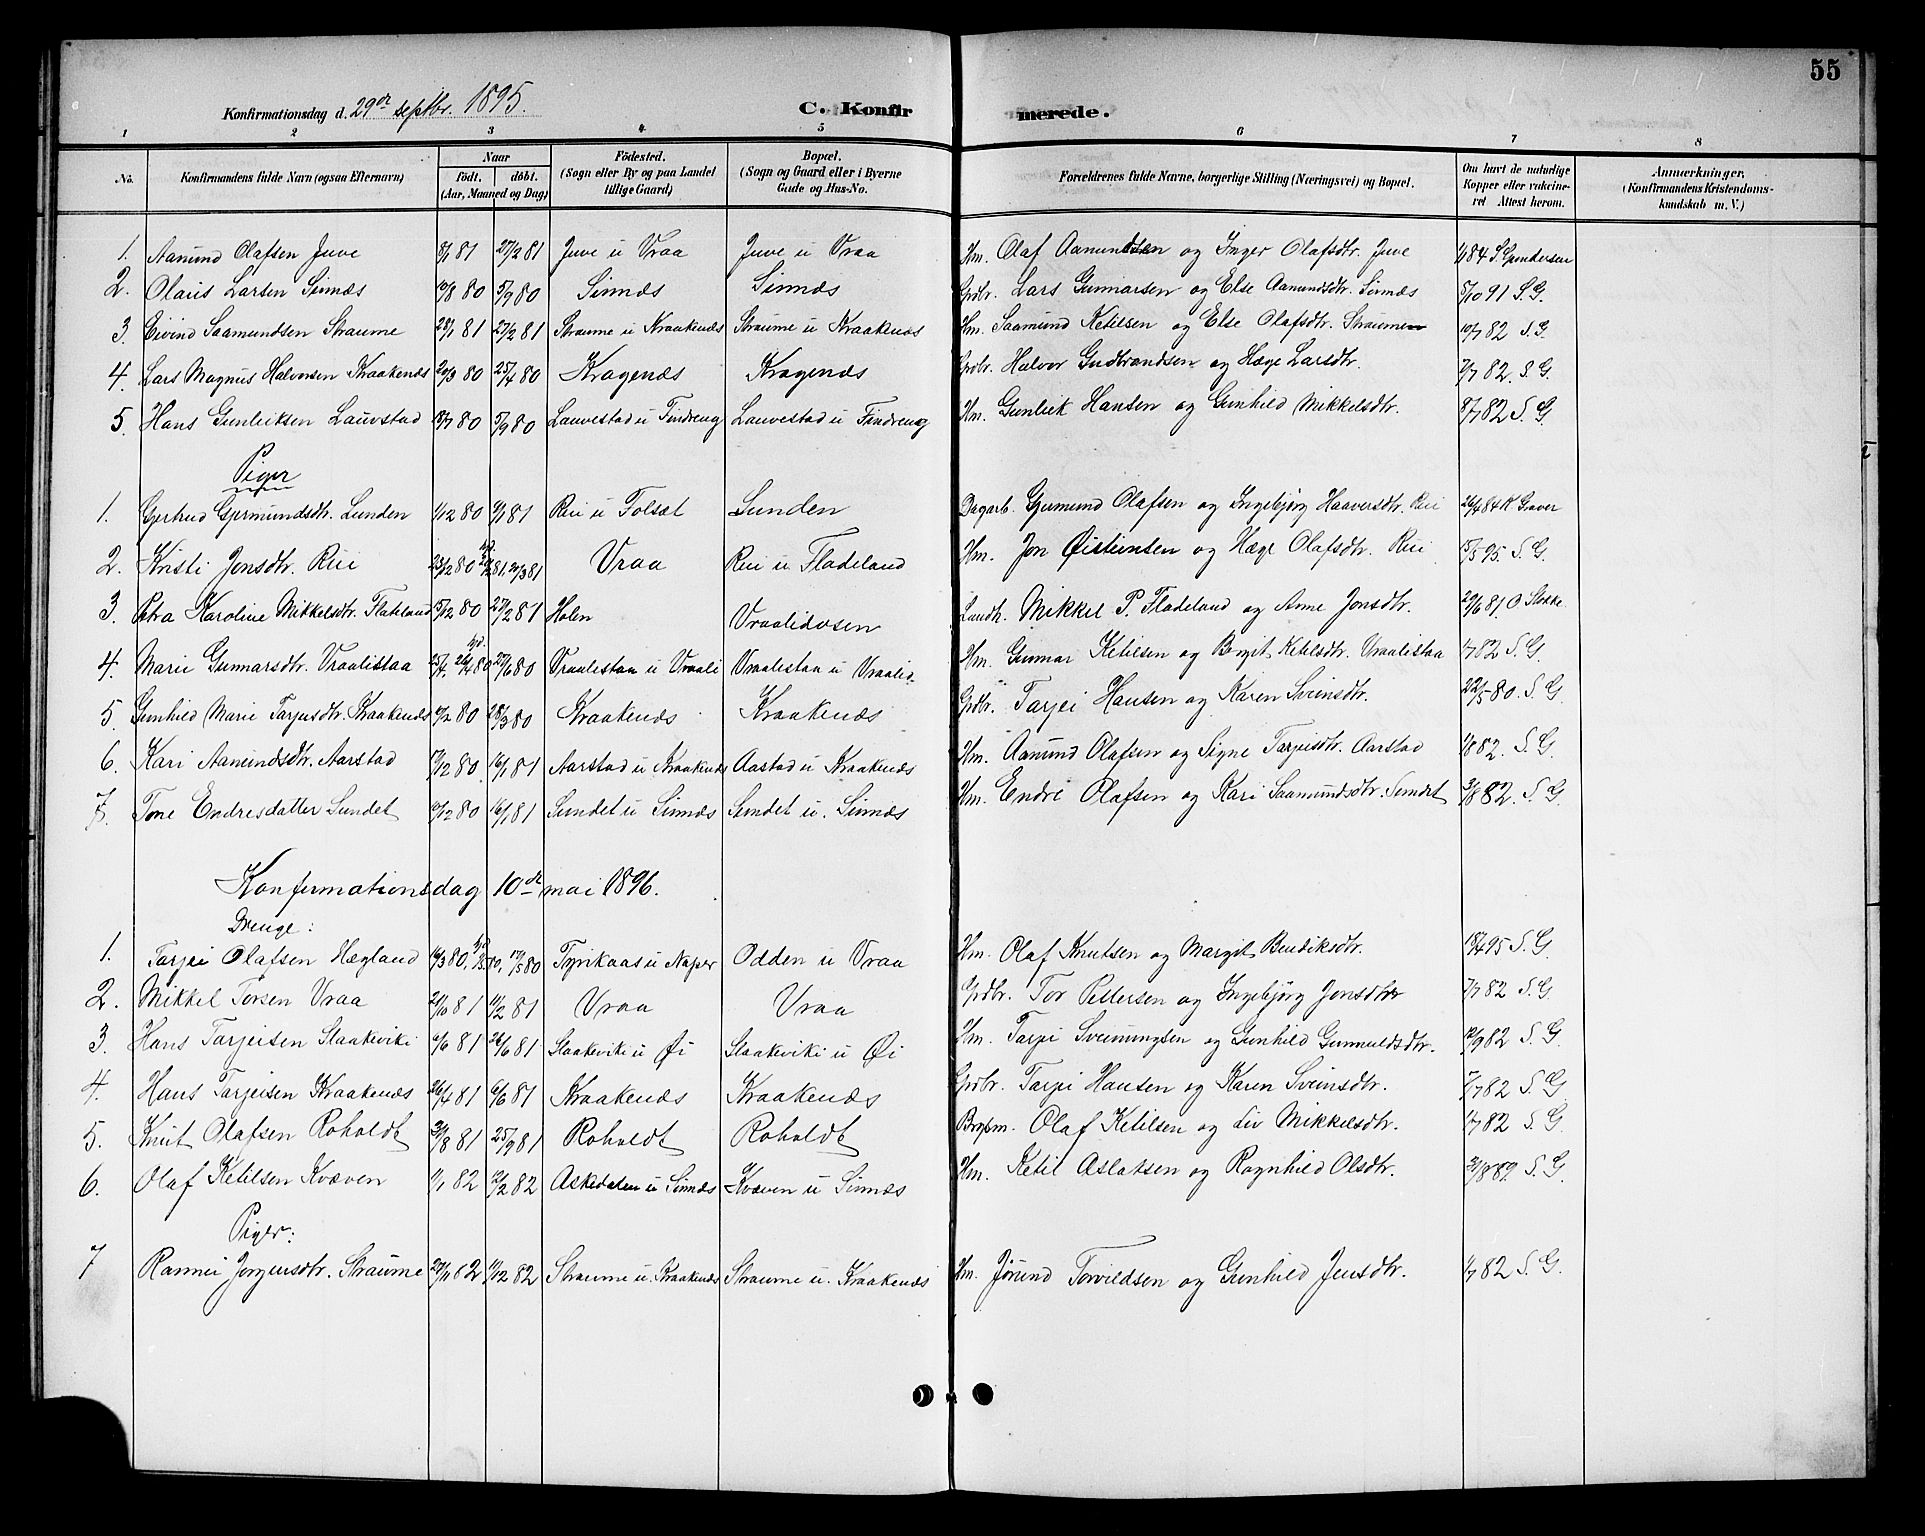 55
Konfirmationsdag d. 29de septbr. 1895. C. Konfirmerede.
1 2 3 4 5 6 7 8
No. Konfirmandens fulde Navn (ogsaa Efternavn) Naar født. døbt. (Aar, Maaned og Dag) Födested. (Sogn eller By og paa Landet tillige Gaard) Bopæl. (Sogn og Gaard eller i Byerne Gade og Hus-No. Forældrenes fulde Navne, borgerlige Stilling (Næringsvei) og Bopæl. Om havt de naturlige Kopper eller vakcineret Attest herom. Anmærkninger, (Konfirmandens Kristendomskundskab m. V.)
1. Aanund Olafsen Juve 8/1 81 27/2 81 Juve u Vraa Juve u Vraa Hm. Olaf Aanundsen og Inger Olafsdtr. Juve 84 S Gundersen
2. Olaus Larsen Sinnæs 10/8 80 5/9 80 Sinnæs Sinnæs Grdbr. Lars Gunnarsen og Else Aanundsdtr. Sinnæs 5/10 91 S. G.
3. Eivind Saamundsen Straume 23/1 81 27/2 81 Straume u Kraakenæs Straume u Kraakenæs Hm. Saamund Ketilsen og Else Olafsdtr. Straume 10/7 82 S. G.
4. Lars Magnus Halvorsen Kraakenæs 20/3 80 25/4 80 Kragenæs Kragenæs Grdbr. Halvor Gudbrandsen og Hæge Larsdtr. 7/7 82. S. G.
5. Hans Gunleiksen Lauvstad 18/7 80 5/9 80 Lauvestad u Findreng Lauvestad u Findreng Hm. Gunleik Hansen og Gunhild Mikkelsdtr. 8/7 82 S. G.
Piger
1. Gjertrud Gjermundsdtr. Lunden 1/12 80 9/1 81 Rui u Folsæt Lunden Dagarb. Gjermund Olafsen og Ingebjørg Haaversdtr. Rui 26/4 84 K Graver
2. Kristi Jonsdtr. Rui 23/12 80 20/3 81 Vraa Rui u Fladeland Hm. Jon Øisteinsen og Hæge Olafsdtr. Rui 15/5 95. S. G.
3. Petra Karoline Mikkelsdtr. Flateland 15/12 80 27/2 81 Holen Vraalidosen Landh. Mikkel P. Fladeland og Anne Jonsdtr. 29/6 81 O. Stokke
4. Marie Gunnarsdtr. Vraalistaa 27/6 80 Vraalestaa u Vraali Vraalestaa u Vraalid. Hm. Gunnar Ketilsen og Bergit Ketilsdtr. Vraalistaa 1/7 82 S. G.
5. Gunhild Marie Tarjusdtr. Kraakenæs 9/2 80 28/3 80 Kraakenæs Kraakenæs Grdbr. Tarjei Hansen og Karen Sveinsdtr. 22/5 80. S. G.
6. Kari Aanundsdtr. Aarstad 17/12 80 16/1 81 Aarstad u Kraakenæs Aastad u Kraakenæs Hm. Aanund Olafsen og Signe Tarjeisdtr. Aarstad 1/8 82. S. G.
7. Tone Endresdatter Sundet 9/12 80 16/1 81 Sundet u Sinnæs Sundet u. Sinnæs Hm. Endre Olafsen og Kari Saamundsdtr. Sundet 3/8 82. S. G.
Konfirmationsdag 10de mai 1896.
Drenge:
1. Tarjei Olafsen Hægland 16/3 80, 17/5 80 Tyrikaas u Naper Odden u Vraa Hm. Olaf Knutsen og Margit Bendiksdtr. 18/4 95 S. G.
2. Mikkel Torsen Vraa 81 11/12 81 Vraa Vraa Grdbr. Tor Pettersen og Ingebjörg Jonsdtr 7/7 82 S. G.
3. Hans Tarjeisen Slaakeviki 6/6 81 26/6 81 Slaakeviki u Øi Slaakeviki u Øi Hm. Tarjei Sveinungsen og Gunhild Gunnuldsdtr. 12/9 82 S. G.
4. Hans Tarjeisen Kraakenæs 26/4 81 6/6 81 Kraakenæs Kraakenæs Grdbr. Tarjei Hansen og Karen Sveinsdtr. 7/7 82 S. G
5. Knut Olafsen Roholdt 31/8 81 25/9 81 Roholdt Roholdt Olaf Ketilsen og Liv Mikkelsdtr. 1/7 82 S. G.
6. Olaf Ketilsen Kvæven 1/1 82 12/2 82 Askedalen u Sinnæs Kvæven u Sinnæs Hm. Ketil Aslaksen og Ragnhild Olsdtr. 31/8 82 S. G.
Piger:
7 Rannei Jorgensdtr. Straume 82 11/12 82 Straume u. Kraakenæs Straume u. Kraakenæs Hm. Jørund Torvildsen og Gunhild Jensdtr. 1/7 82 S. G.